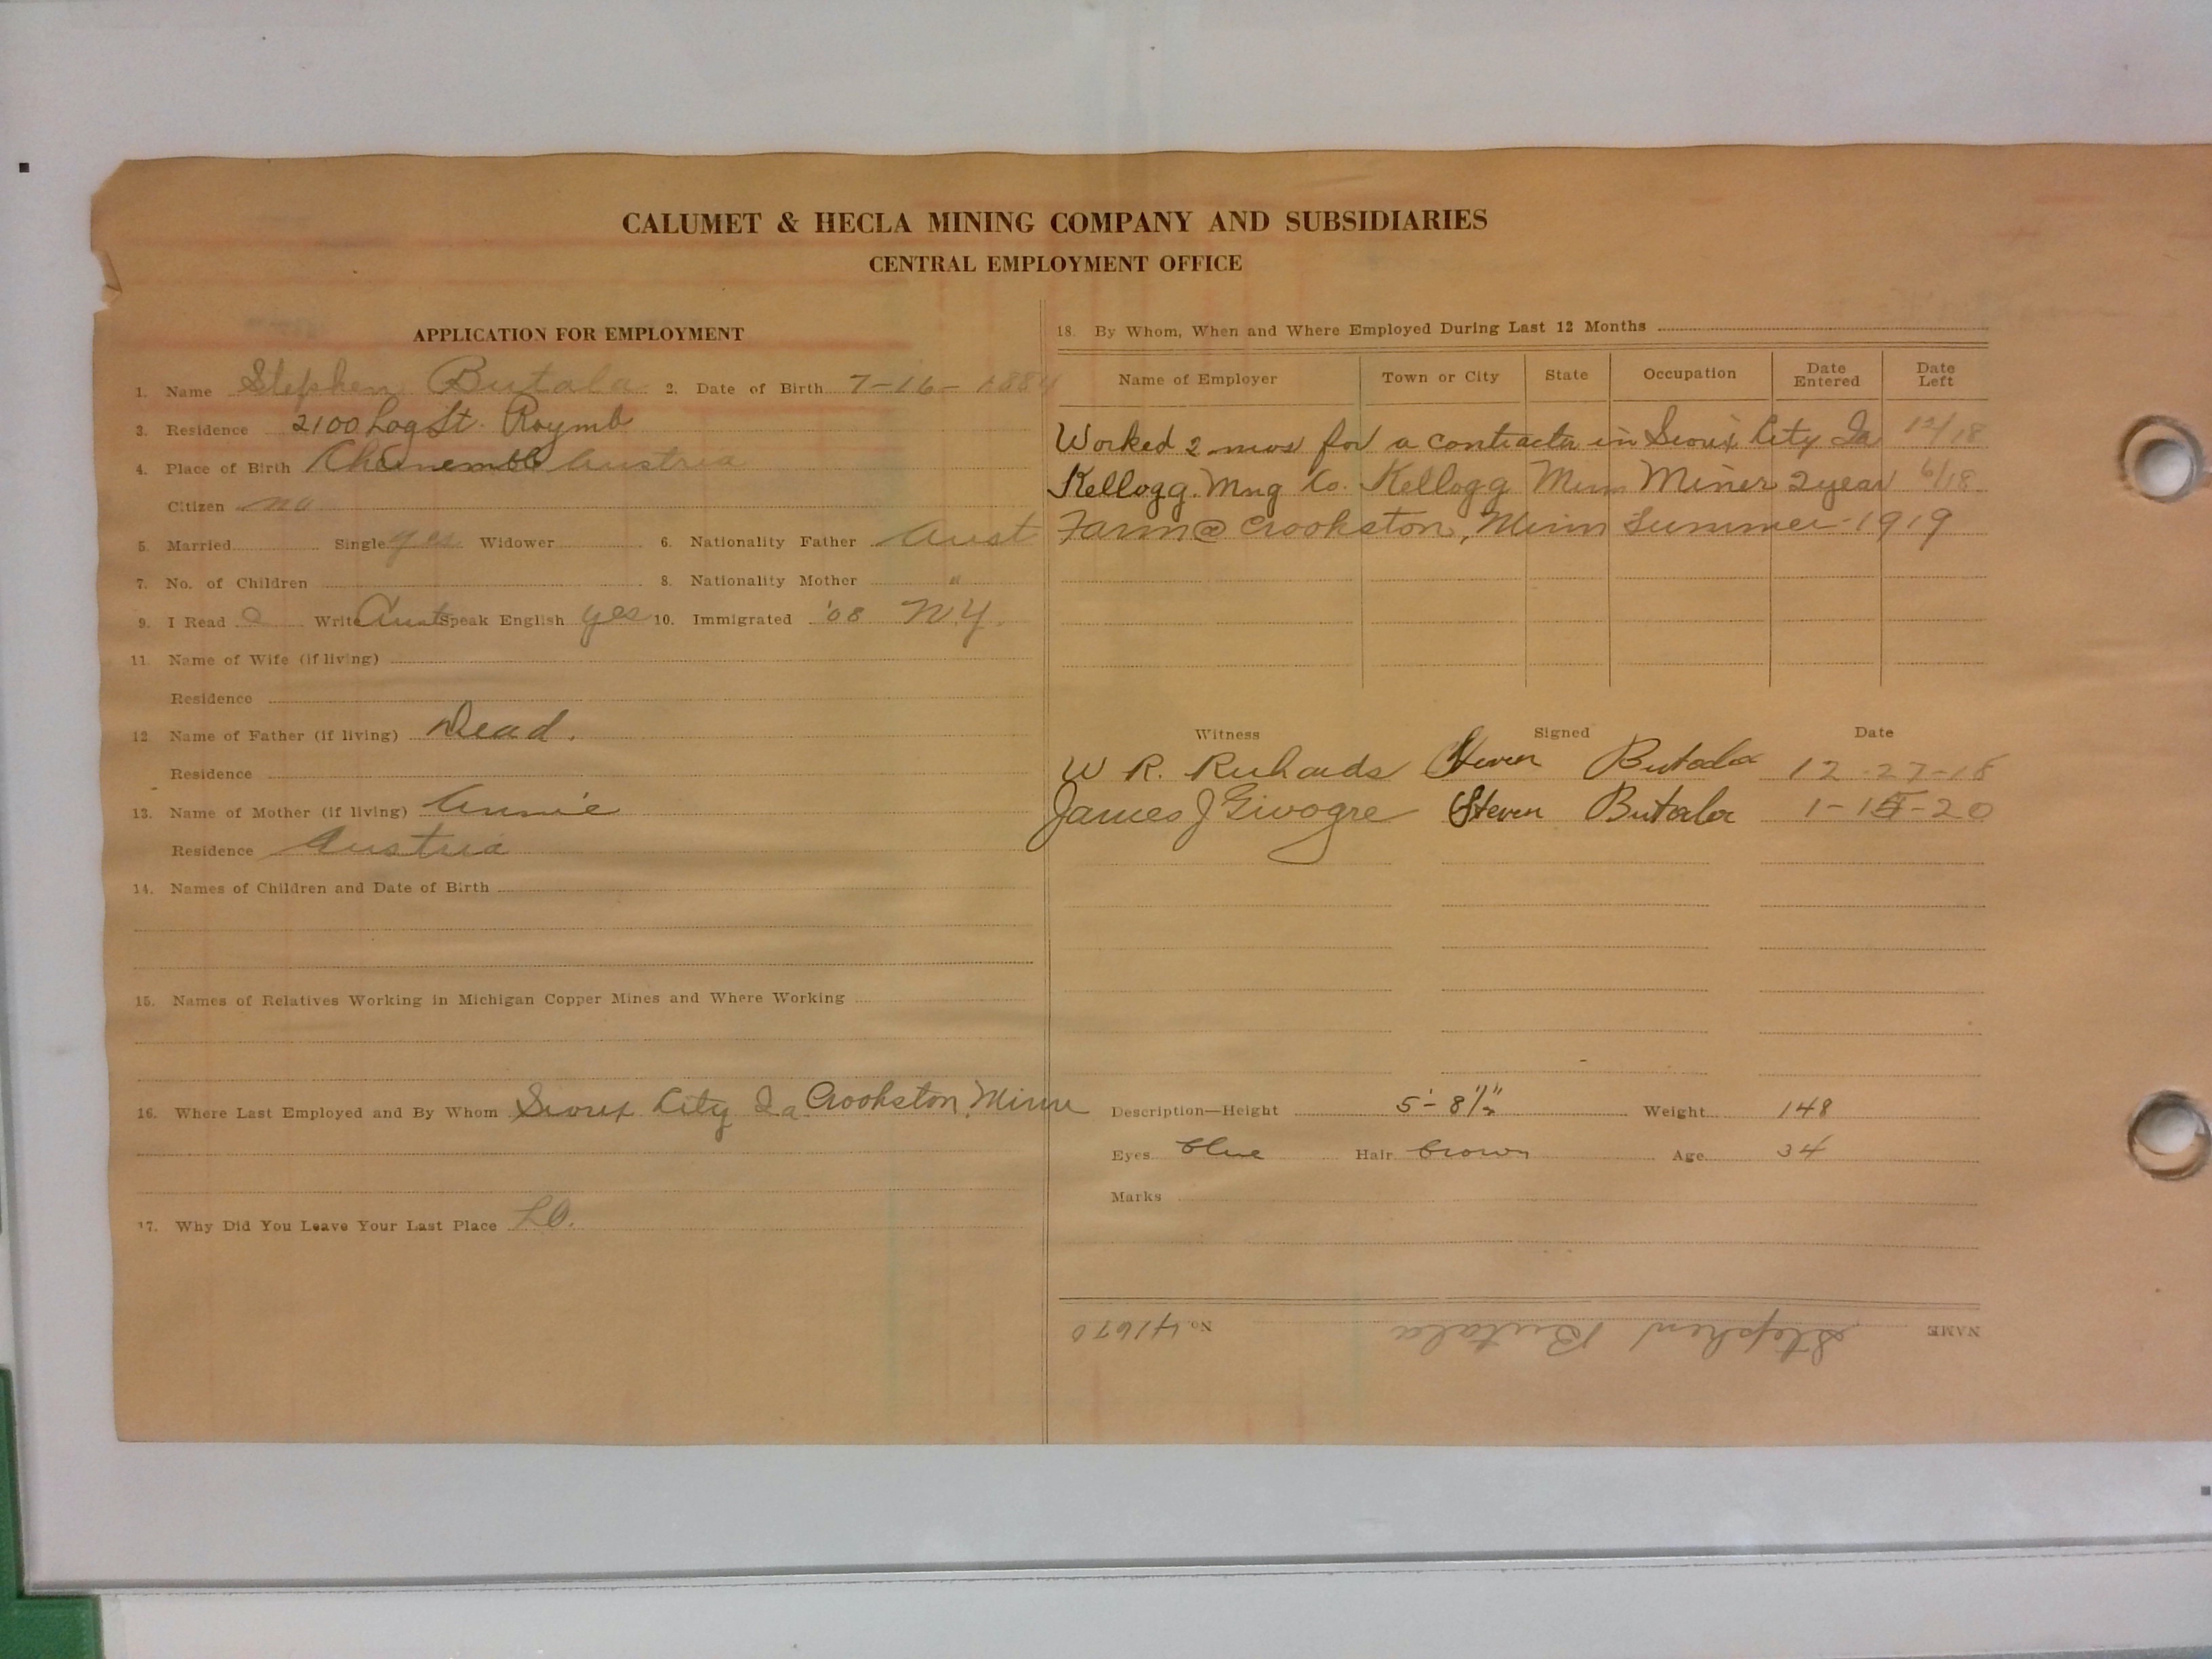 CALUMET & HECLA MINING COMPANY AND SUBSIDIARIES
CENTRAL EMPLOYMENT OFFICE
APPLICATION FOR EMPLOYMENT
1. Name Stephen Butala 2. Date of Birth 7-16-1884
3. Residence 2100 Log St. Raymb
4. Place of Birth Austria
Citizen no
5. Married Single yes Widower 6. Nationality Father Aust
7. No. of Children 8. Nationality Mother "
9. I Read Write Aust Speak English yes 10. Immigrated '08 N.Y.
11. Name of Wife (if living)
Residence
12. Name of Father (if living) Dead.
Residence
13. Name of Mother (if living) Annie
Residence Austria
14. Names of Children and Date of Birth
15. Names of Relatives Working in Michigan Copper Mines and Where Working
16. Where Last Employed and By Whom Sioux City Ia Crookston, Minn
17. Why Did You Leave Your Last Place LO.
18. By Whom, When and Where Employed During Last 12 Months
Name of Employer Town or City State Occupation Date Entered Date Left
Worked 2 mos for a contractor in Sioux City Ia 12/18
Kellogg Mng Co. Kellogg Minn Miner 2 year 6/18
Farm @ Crookston, Minn Summer-1919
Witness Signed Date
W R. Richards Steven Butala 12-27-18
James J Givogre Steven Butala 1-15-20
Description—Height 5'-8 1/2" Weight 148
Eyes blue Hair brown Age 34
Marks
NAME Stephen Butala No. 41670